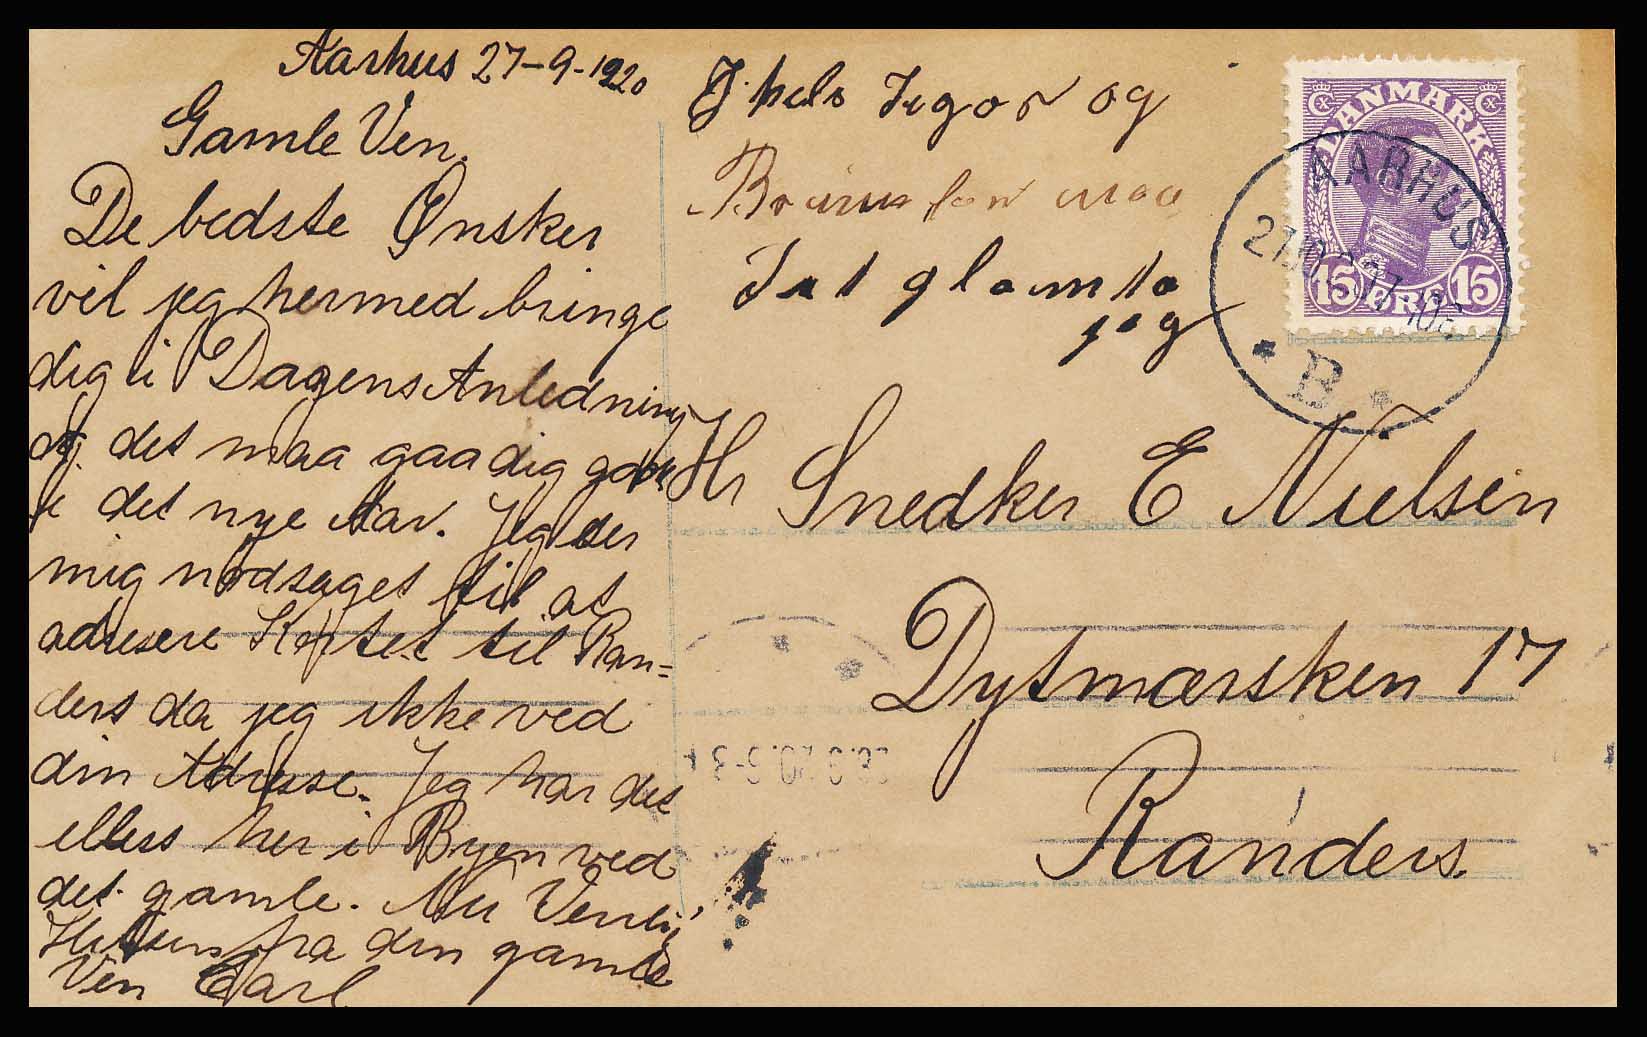 Aarhus 27-9-1920
Gamle Ven.
De bedste Ønsker
vil jeg hermed bringe
dig i Dagens Anledning
og det maa gaa dig godt
i det nye Aar. Jeg ser
mig nødsaget til at
adresere Kortet til Ran=
ders da jeg ikke ved
din Adresse. Jeg har det
ellers her i Byen ved
det gamle. Nu Venlig
Hilsen fra din gamle
Ven Carl
og
maa
glemte
jeg
DANMARK
15 ØRE 15
AARHUS
* B *
Hr Snedker E Nielsen
Dytmærsken 17
Randers.